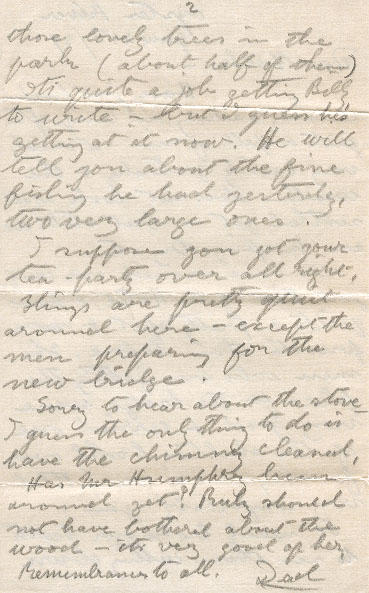 2
those lovely trees in the
park (about half of them)
Its quite a job getting Billy
to write - but I guess he's
getting at it now. He will
tell you about the fine
fishing he had yesterday,
two very large ones.
I suppose you got your
tea-party over all right.
Things are pretty quiet
around here - except the
men preparing for the
new bridge.
Sorry to hear about the stove -
I guess the only thing to do is
have the chimney cleaned,
Has Mr Humphry been
around yet? Ruby should
not have bothered about the
wood - its very good of her,
Remembrances to all. Dad